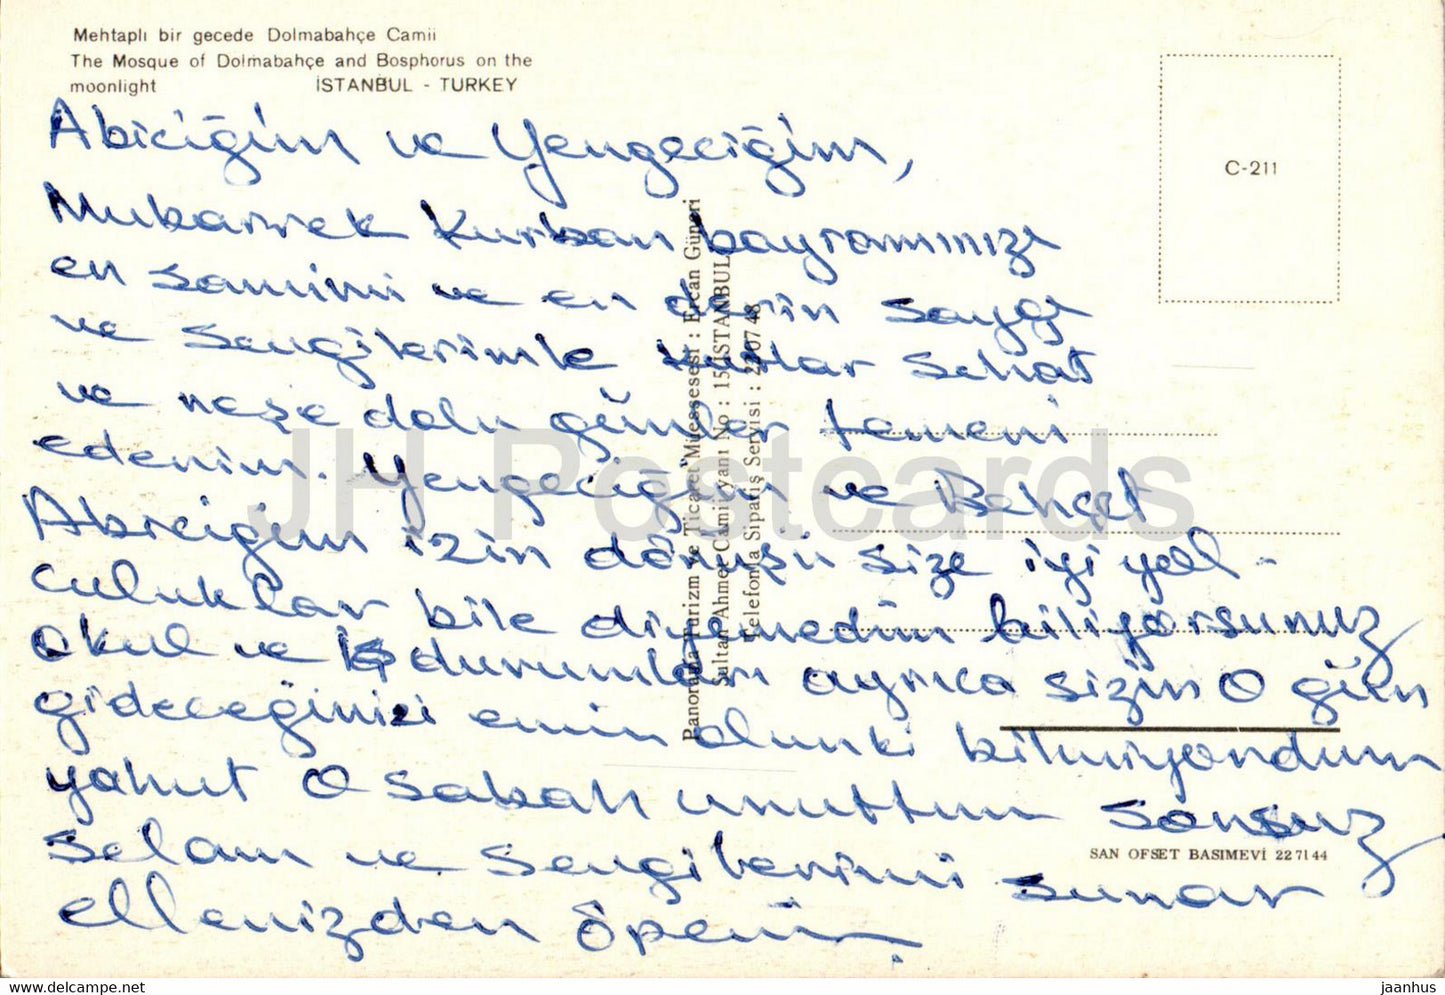 Mehtaplı bir gecede Dolmabahçe Camii
The Mosque of Dolmabahçe and Bosphorus on the
moonlight İSTANBUL - TURKEY
C-211
Abiciğim ve Yengeciğim,
Mubarrek Kurban bayramınızı
en samimi ve en derin saygı
ve sevgilerimle kutlar sehat
ve neşe dolu günler temeni
ederim. Yengeciğim ve Behçet
Abiciğim izin dönüşü size iyi yol-
culuklar bile diyemedim biliyorsunuz
Okul ve iş durumları ayrıca sizin o gün
gideceğinizi emin olunki bilmiyordum
yahut o sabah unuttum sonsuz
selam ve sevgilerimi sunar
ellenizden öperim.
Panorama Turizm ve Ticaret Müessesesi : Ercan Güneri
Sultan Ahmet Camii yanı No : 15 İSTANBUL
Telefonla Sipariş Servisi : 220748
SAN OFSET BASIMEVİ 227144
JH Postcards
www.delcampe.net
jaanhus